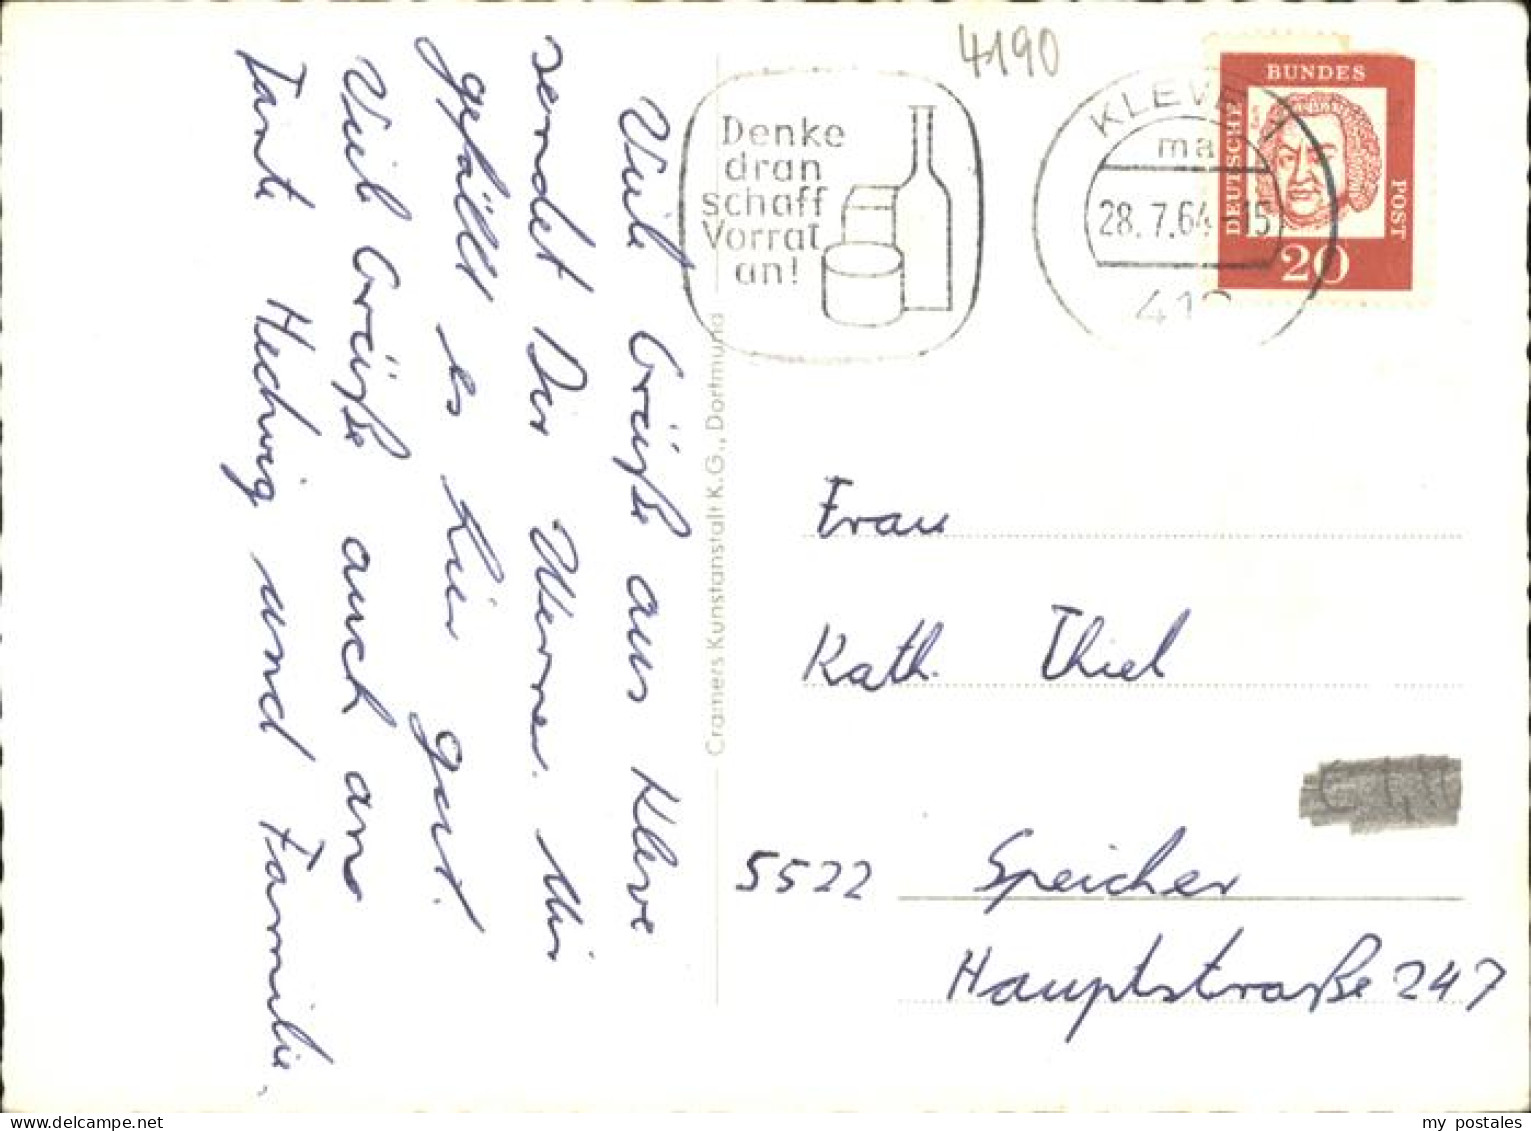 4190
Denke
dran
schaff
Vorrat
an!
KLEVE 1
ma
28.7.64-15
DEUTSCHE
BUNDES
POST
20
Viele Grüße aus Kleve
sendet Dir Werner. Mir
gefällt es hier gut.
Viele Grüße auch an
Tante Hedwig und Familie.
Cramers Kunstanstalt K.G., Dortmund
Frau
Kath. Thiel
5522 Speicher
Hauptstraße 247
my postales